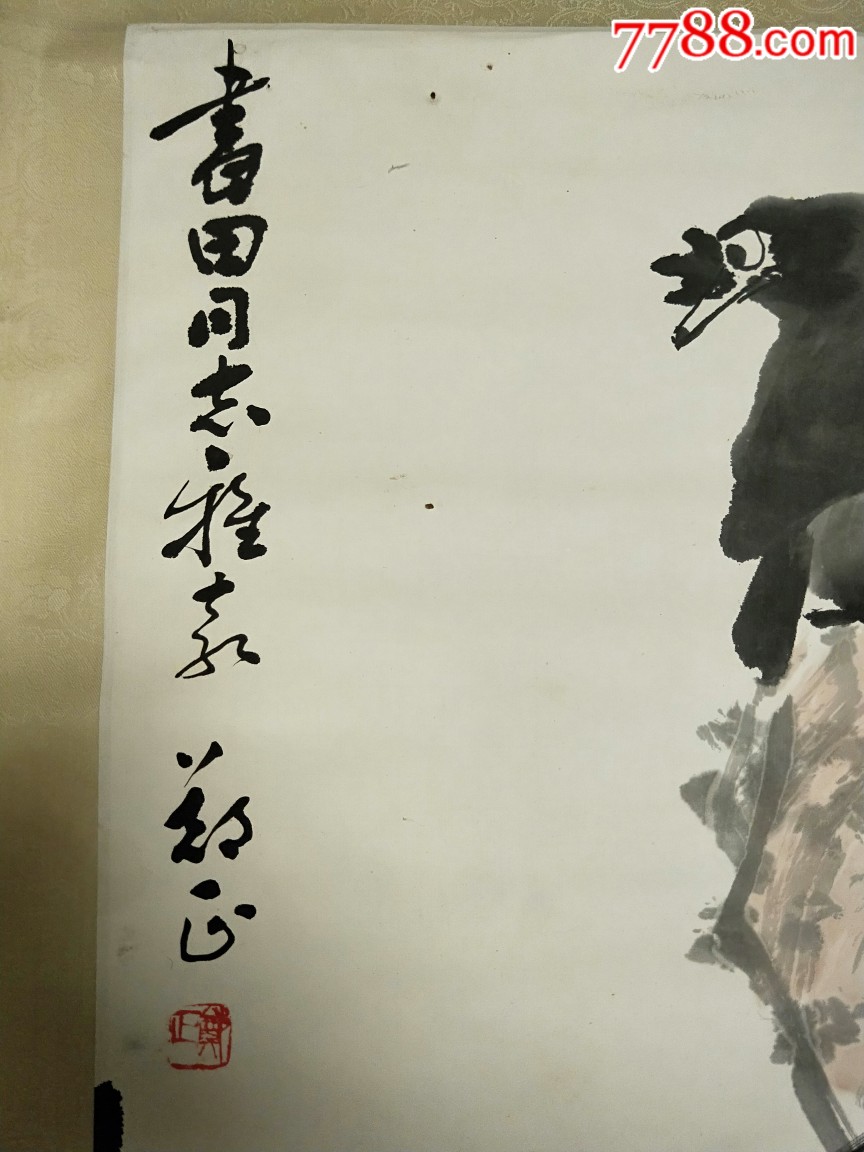 7788.com
書田同志雅
鄭正